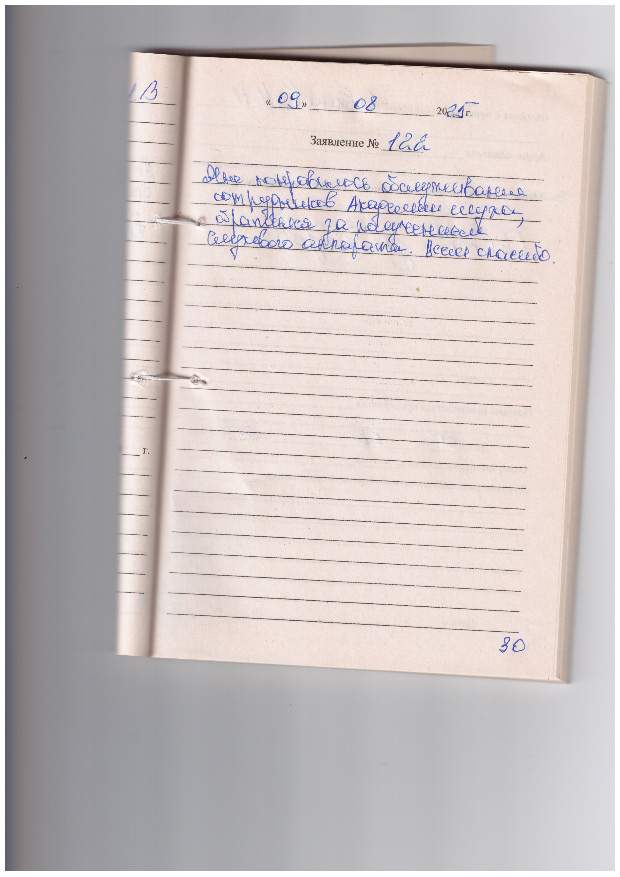 В
« 09 » 08 2025 г.
Заявление № 122
Мне понравилось обслуживание
сотрудников Академии слуха,
обратился за получением
слухового аппарата. Всем спасибо.
г.
30